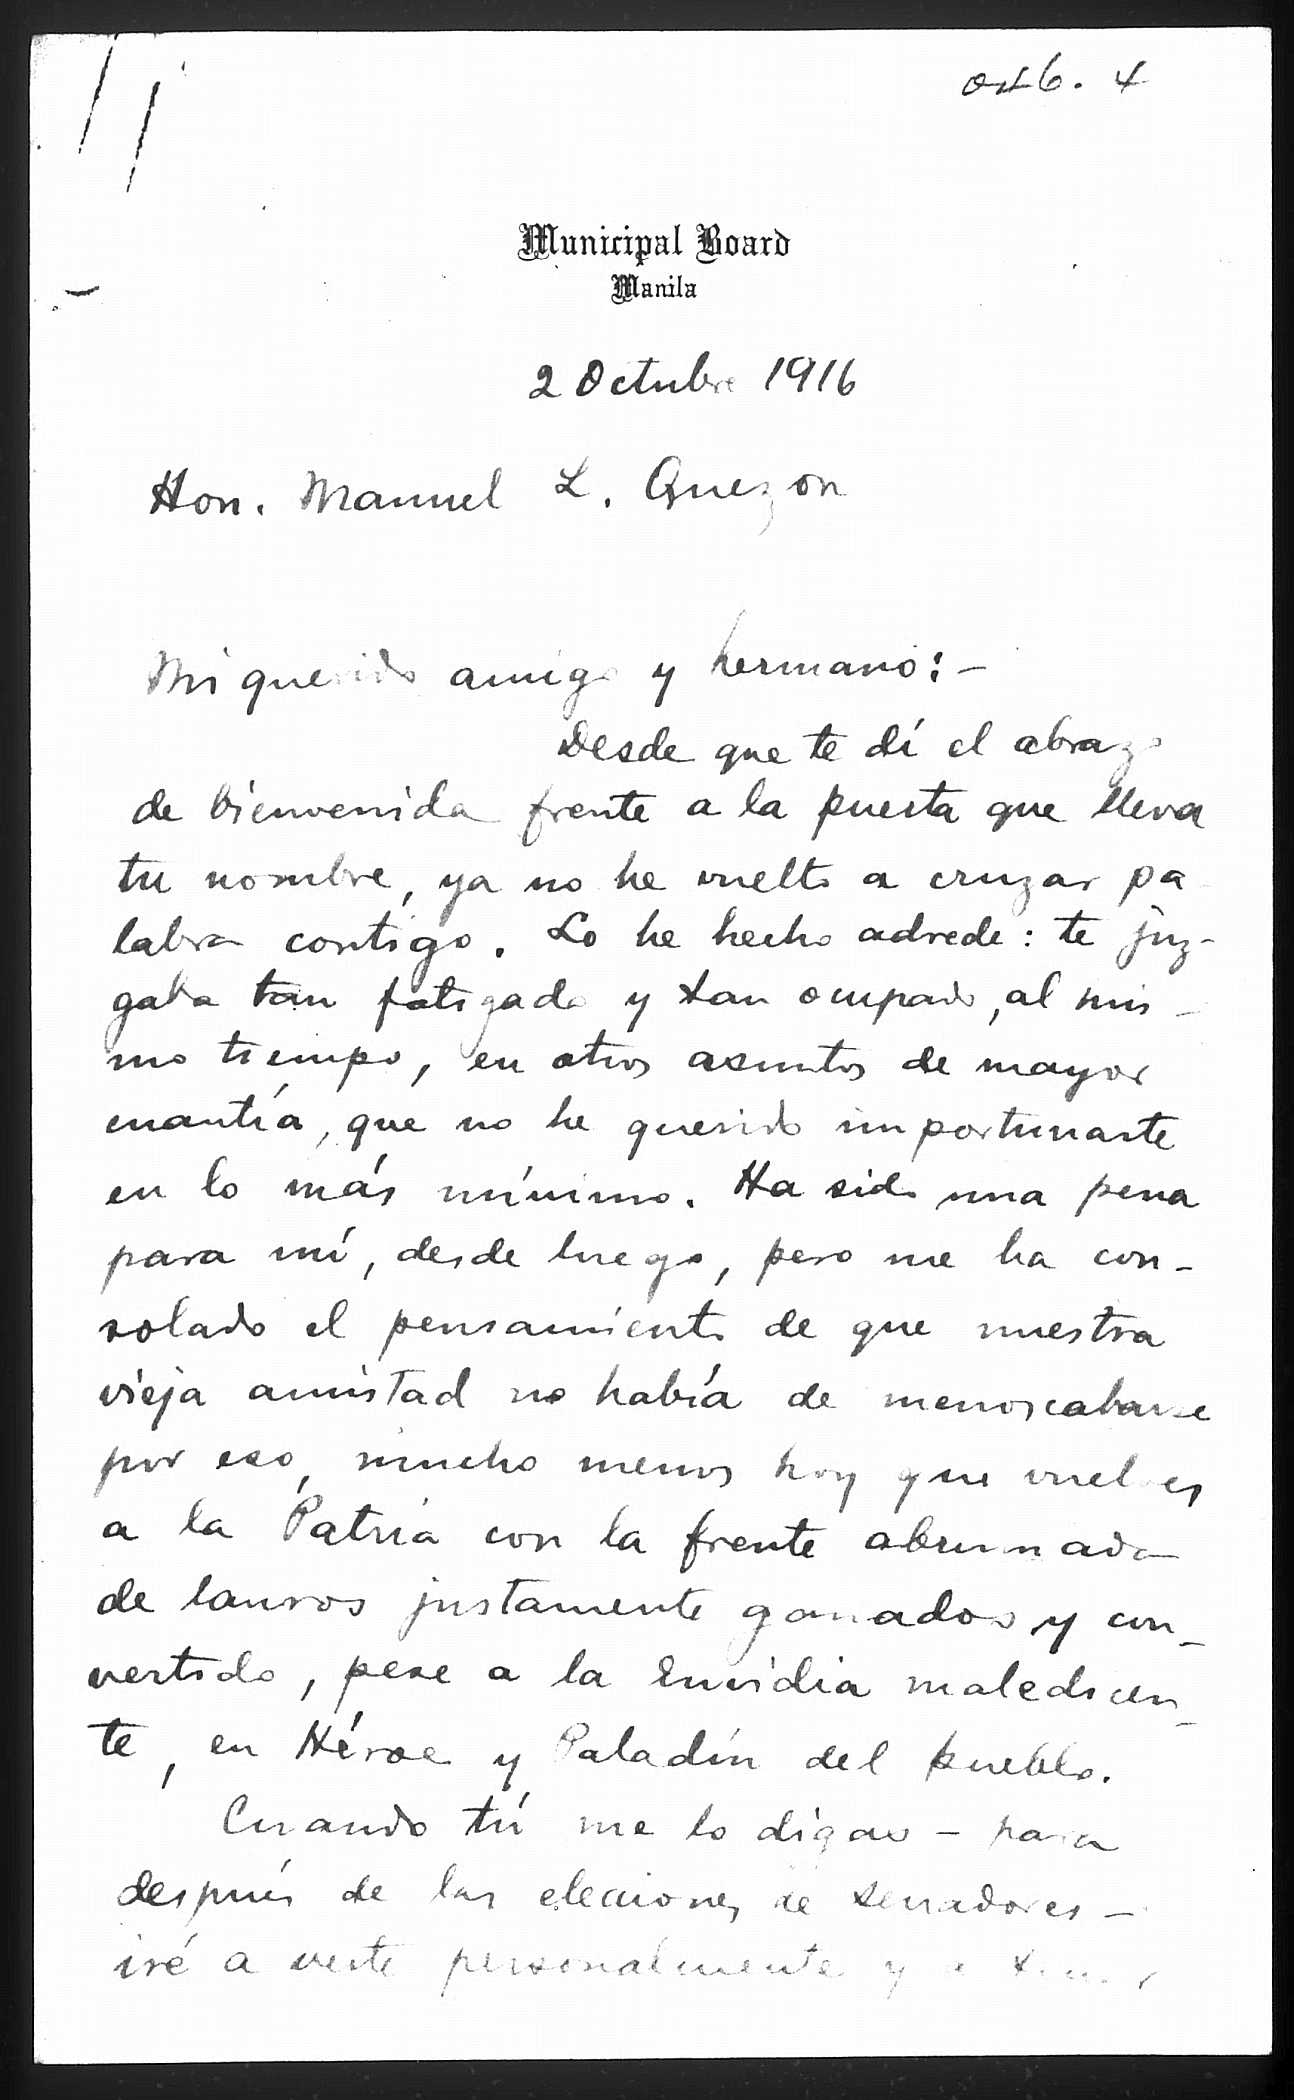 Oct 6. 4
Municipal Board
Manila
2 Octubre 1916
Hon. Manuel L. Quezon
Mi querido amigo y hermano:-
Desde que te dí el abrazo
de bienvenida frente a la puerta que lleva
tu nombre, ya no he vuelto a cruzar pa
labra contigo. Lo he hecho adrede: te juz-
gaba tan fatigado y tan ocupado, al mis-
mo tiempo, en otros asuntos de mayor
cuantía, que no he querido importunarte
en lo más mínimo. Ha sido una pena
para mí, desde luego, pero me ha con-
solado el pensamiento de que nuestra
vieja amistad no había de menoscabarse
por eso, mucho menos hoy que vuelves
a la Patria con la frente abrumada
de lauros justamente ganados y con-
vertido, pese a la Envidia maledicen-
te, en Héroe y Paladín del pueblo.
Cuando tú me lo digas - para
después de las elecciones de senadores -
iré a verte personalmente y a